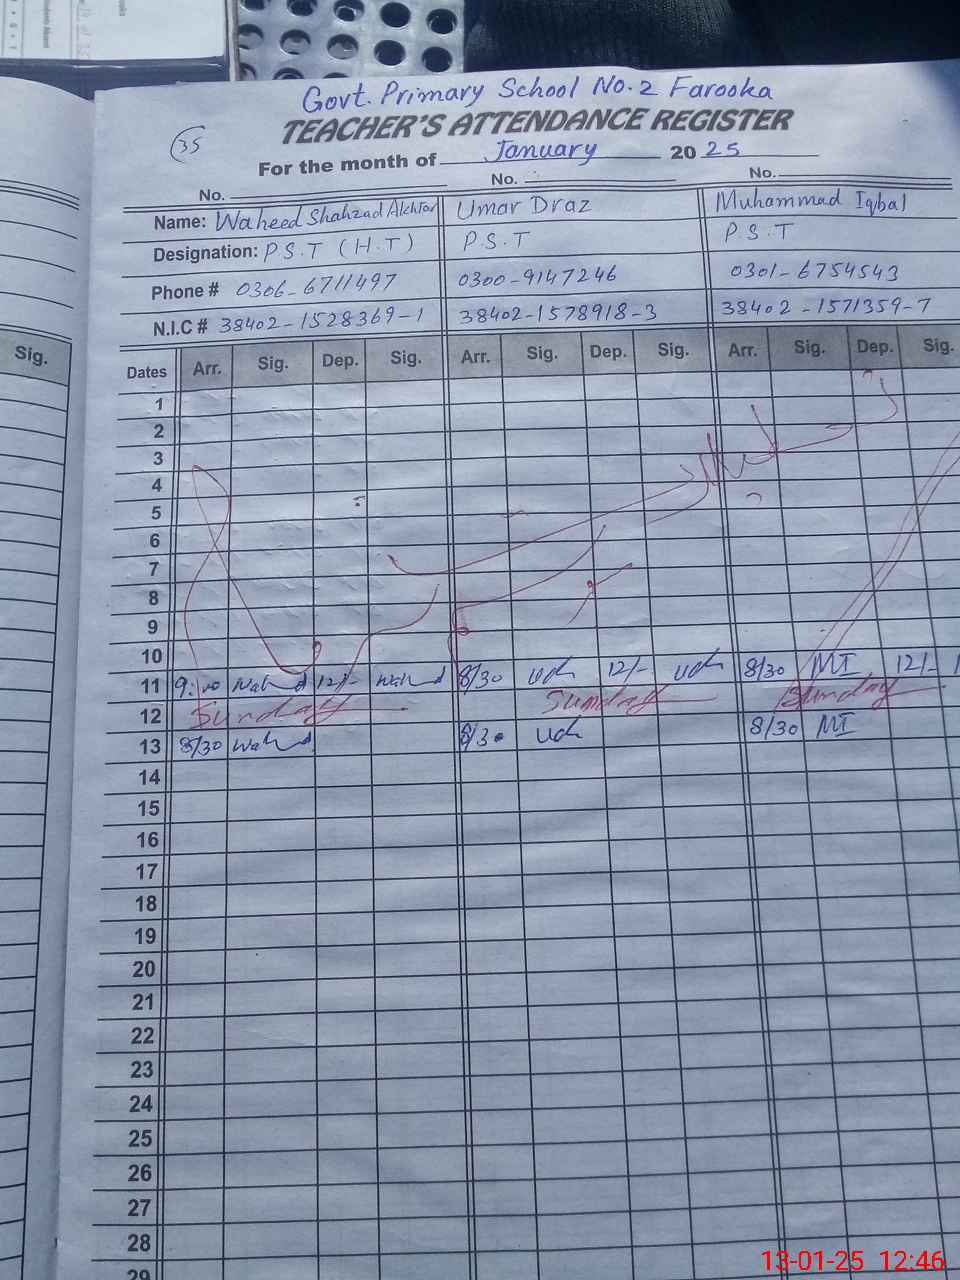 Govt. Primary School No.2 Farooka
TEACHER'S ATTENDANCE REGISTER
35
For the month of January 2025
No. No. No.
Name: Waheed Shahzad Akhtar Umar Draz Muhammad Iqbal
Designation: P.S.T (H.T) P.S.T P.S.T
Phone # 0306-6711497 0300-9147246 0301-6754543
N.I.C # 38402-1528369-1 38402-1578918-3 38402-1571359-7
Sig. Dates Arr. Sig. Dep. Sig. Arr. Sig. Dep. Sig. Arr. Sig. Dep. Sig.
1
2
3
4
5
6
7
8
9
10
11 9:00 Wahd 12/- Wahd 8/30 Udh 12/- Udh 8/30 MI 12/-
12 Sunday Sunday Sunday
13 8/30 Wahd 8/30 Udh 8/30 MI
14
15
16
17
18
19
20
21
22
23
24
25
26
27
28
29
13-01-25 12:46